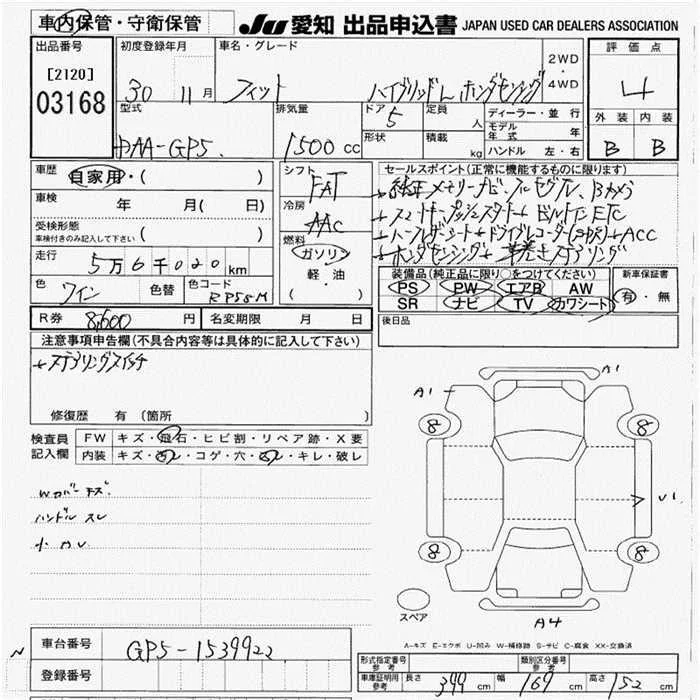 車内保管・守衛保管 JU 愛知 出品申込書 JAPAN USED CAR DEALERS ASSOCIATION
出品番号 初度登録年月 車名・グレード 2WD・4WD 評価点
[2120] 30 11月 フィット ハイブリッドL ホンダセンシング 4
03168
型式 排気量 ドア 定員 人 ディーラー・並行 外装 内装
DAA-GP5 1500 cc 5 形状 積載 kg モデル年式 年 B B
ハンドル 左・右
車歴 自家用・( ) シフト FAT セールスポイント(正常に機能するものに限ります)
車検 年 月( 日) 冷房 AAC
+純正メモリーナビ フルセグTV, Bカメラ
+スマートキー プッシュスタート+ビルトインETC
+ドライブレコーダー +ACC
+ホンダセンシング+革巻きステアリング
受検形態
車検付きのみ記入して下さい( ) 燃料 ガソリン 軽・油 ( )
走行 5万6千020km
装備品(純正品に限り○をつけてください) 新車保証書
色 ワイン 色替 色コード RP55M
PS PW エアB AW 有・無
SR ナビ TV カワシート
R券 8,600 円 名変期限 月 日 後日品
注意事項申告欄(不具合内容等は具体的に記入して下さい)
+ステアリングスイッチ
修復歴 有(箇所 )
検査員記入欄 FW キズ・飛石・ヒビ割・リペア跡・X要
内装 キズ・汚レ・コゲ・穴・スレ・キレ・破レ
Wカバーキズ.
ハンドル スレ
小キズ
A1
A1
8 8
U1
8 8
スペア
A4
A-キズ E-エクボ U-凹み W-補修跡 S-サビ C-腐食 XX-交換済
車台番号 GP5-1539922
登録番号
N
形式指定番号 参考 類別区分番号 参考
車庫証明用参考 長さ 399 cm 幅 169 cm 高さ 152 cm